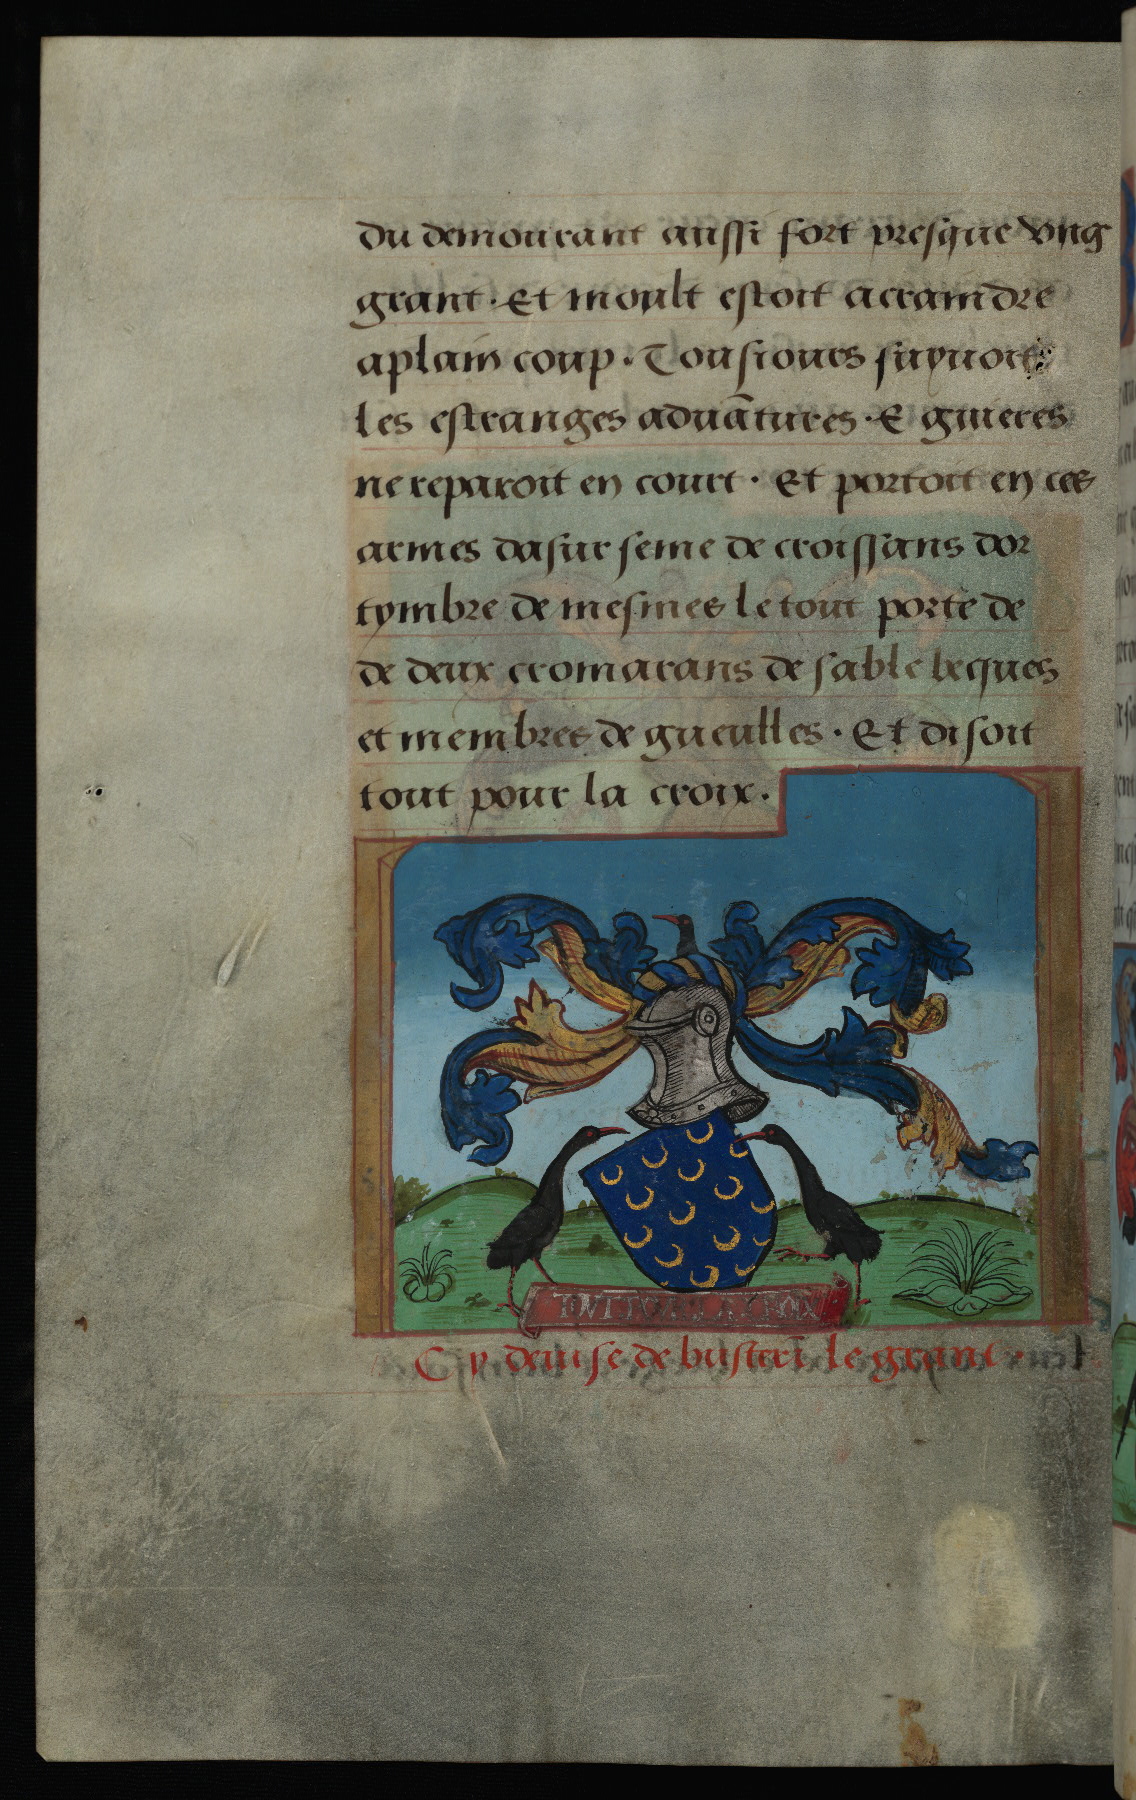 du demourant aussi fort presque vng
grant · Et moult estoit acraindre
aplain coup · Tousiours suyuoit
les estranges aduãtures · E guieres
ne reparoit en court · Et portoit en ces
armes dasur seme de croissans dor
tymbre de mesmes le tout porte de
de deux cromarans de sable becques
et membres de gueulles · Et disoit
tout pour la croix ·
TOVT POVR LA CROIX
Cy deuise de busterĩ le grant